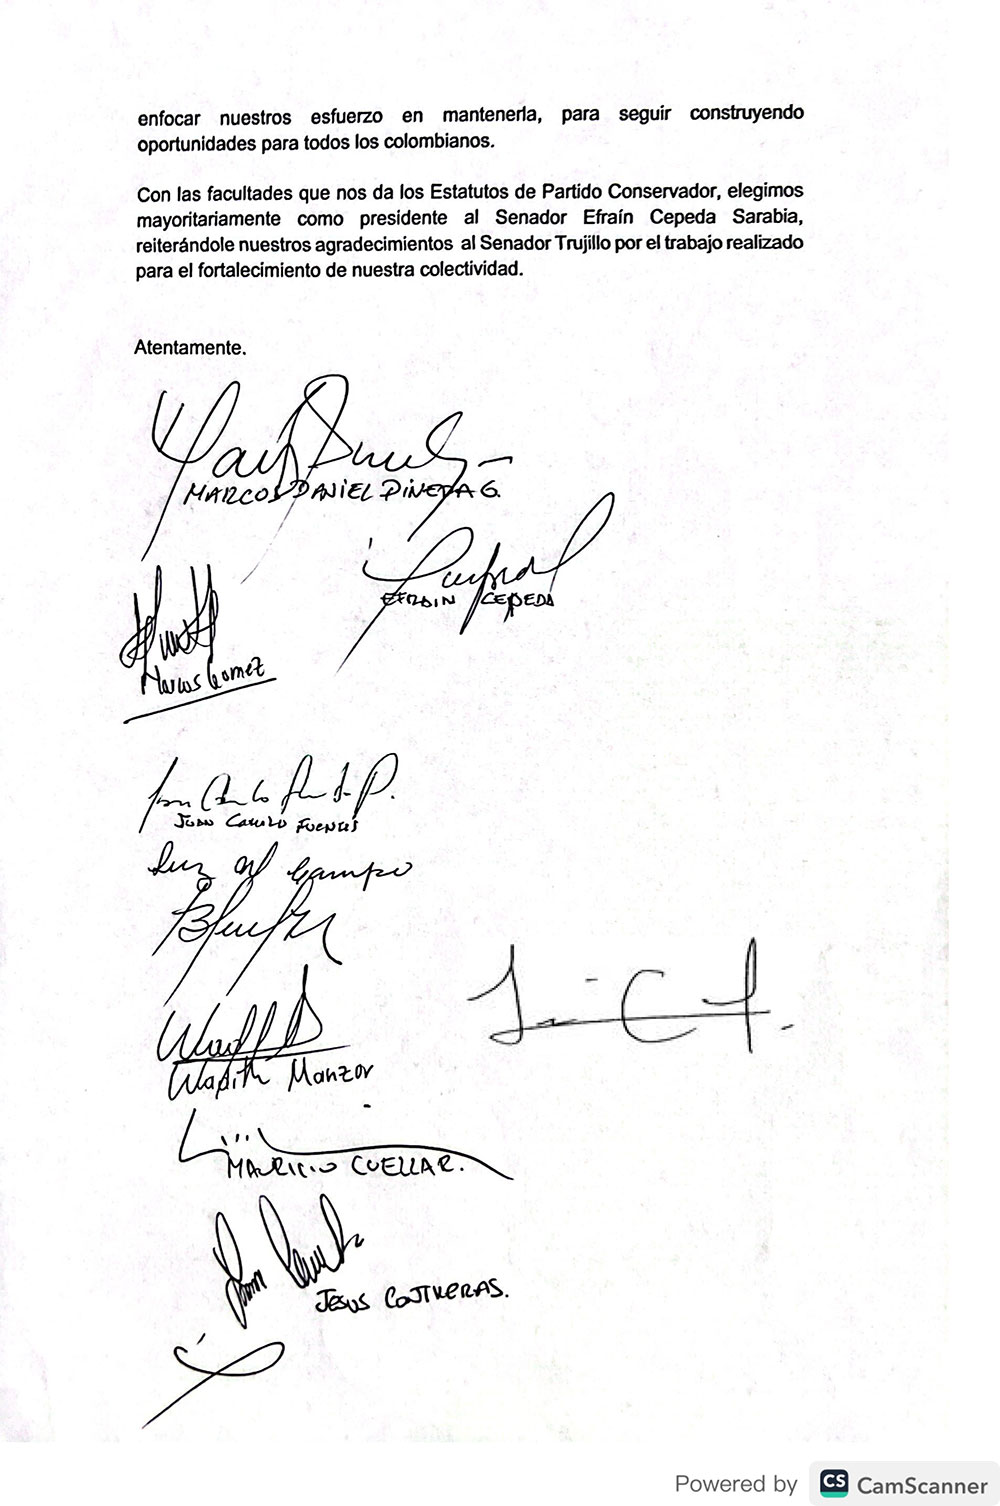 enfocar nuestros esfuerzo en mantenerla, para seguir construyendo
oportunidades para todos los colombianos.
Con las facultades que nos da los Estatutos de Partido Conservador, elegimos
mayoritariamente como presidente al Senador Efraín Cepeda Sarabia,
reiterándole nuestros agradecimientos al Senador Trujillo por el trabajo realizado
para el fortalecimiento de nuestra colectividad.
Atentamente.
MARCOS DANIEL PINEDA G.
EFRAIN CEPEDA
Marcos Gomez
JUAN CAMILO FUENTES
Wadith Manzor
MAURICIO CUELLAR.
JESUS CONTRERAS.
Powered by CS CamScanner